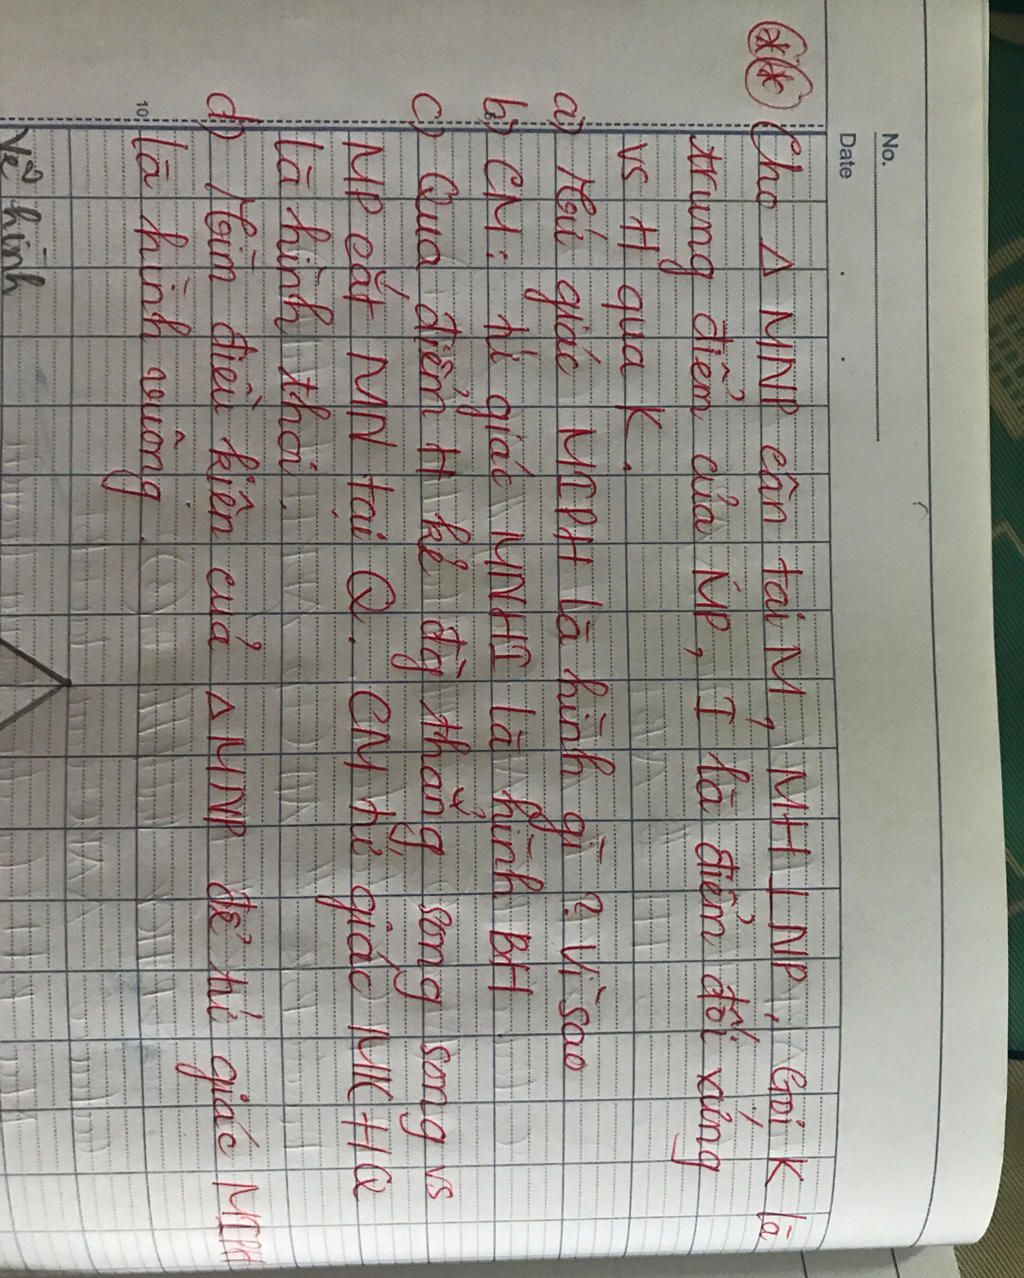 No.
Date
** Cho Δ MNP cân tại M, MH ⊥ NP, Gọi K là
trung điểm của MP, I là điểm đối xứng
vs H qua K.
a) Tứ giác MIPH là hình gì? Vì sao
b) CM: tứ giác MNHI là hình BH.
c) Qua điểm H kẻ đg thẳng song song vs
MP cắt MN tại Q. CM tứ giác MKHQ
là hình thoi.
d) Tìm điều kiện của Δ MNP để tứ giác MIPH
10 là hình vuông.
Vẽ hình